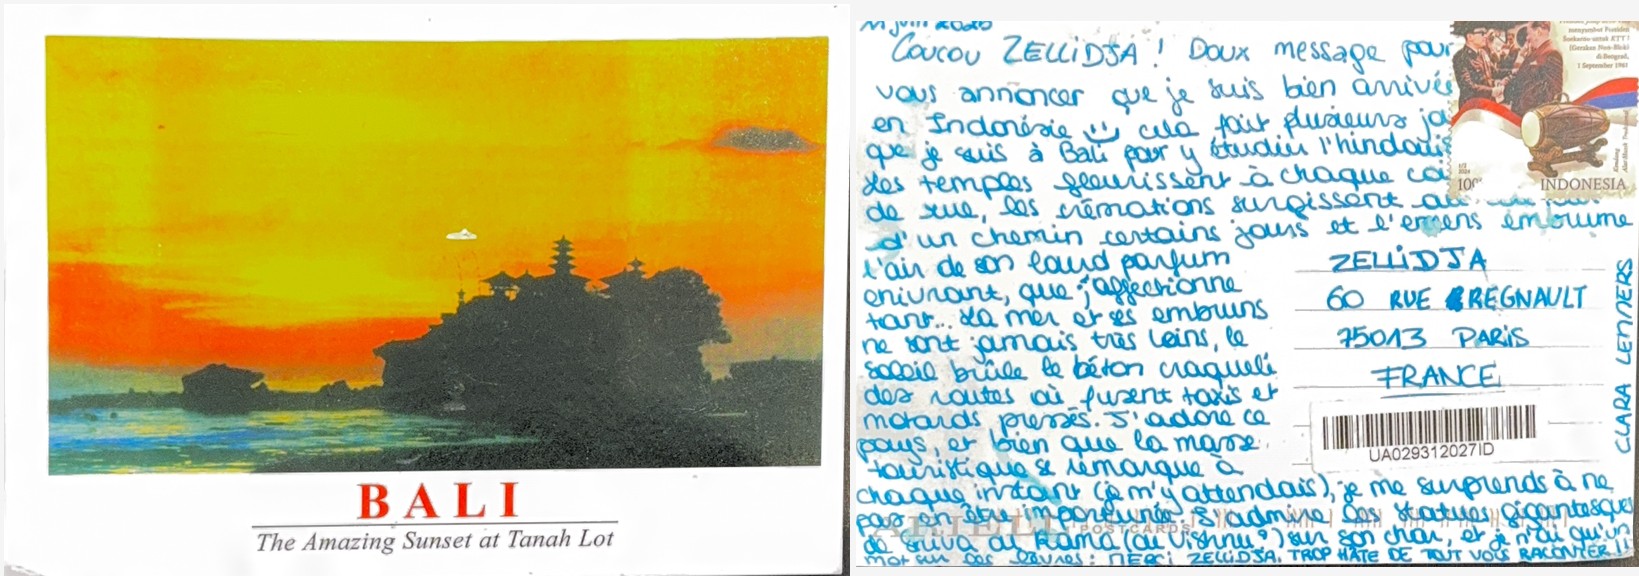 BALI
The Amazing Sunset at Tanah Lot
11 juin 2026
Coucou ZELLIDJA ! Doux message pour
vous annoncer que je suis bien arrivée
en Indonésie cela fait plusieurs
que je suis à Bali pour y étudier l'hindouis
Les temples fleurissent à chaque
de rue, les crémations surgissent
d'un chemin certains jours et l'encens embrume
l'air de son lourd parfum
enivrant, que j'affectionne
tant... La mer et ses embruns
ne sont jamais très loins, le
soleil brûle le béton craquelé
des routes où fusent taxis et
motards pressés. J'adore ce
pays, et bien que la masse
touristique se remarque à
chaque instant (je m'y attendais), je me surprends à ne
pas en être importunée. J'admire les statues gigantesques
de Shiva ou Rama (ou Vishnu ?) sur son char, et je n'ai qu'un
mot sur les lèvres : MERCI ZELLIDJA. TROP HÂTE DE TOUT VOUS RACONTER !!
POSTCARDS
menyambut Presiden
Soekarno untuk KTT I
(Gerakan Non-Blok)
di Beograd,
1 September 1961
INDONESIA
ZELLIDJA
60 RUE REGNAULT
75013 PARIS
FRANCE
UA029312027ID
CLARA LENDERS